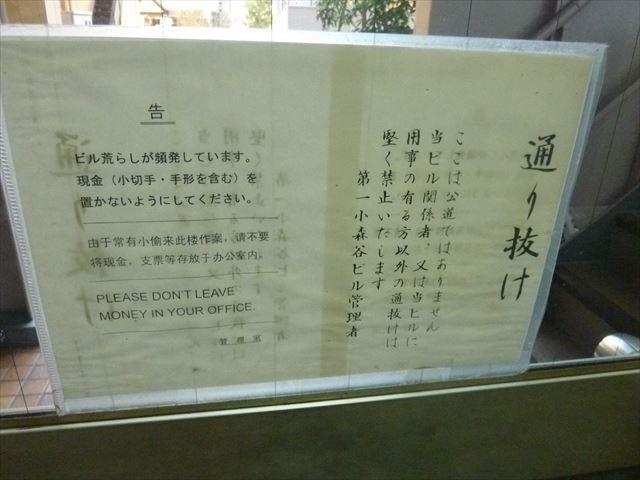 通り抜け
ここは公道ではありません
当ビル関係者、又は当ビルに
用事の有る方以外の通抜けは
堅く禁止いたします
第一小森谷ビル管理者
告
ビル荒らしが頻発しています。
現金（小切手・手形を含む）を
置かないようにしてください。
由于常有小偷来此楼作案，请不要
将现金，支票等存放于办公室内。
PLEASE DON'T LEAVE
MONEY IN YOUR OFFICE.
管理室